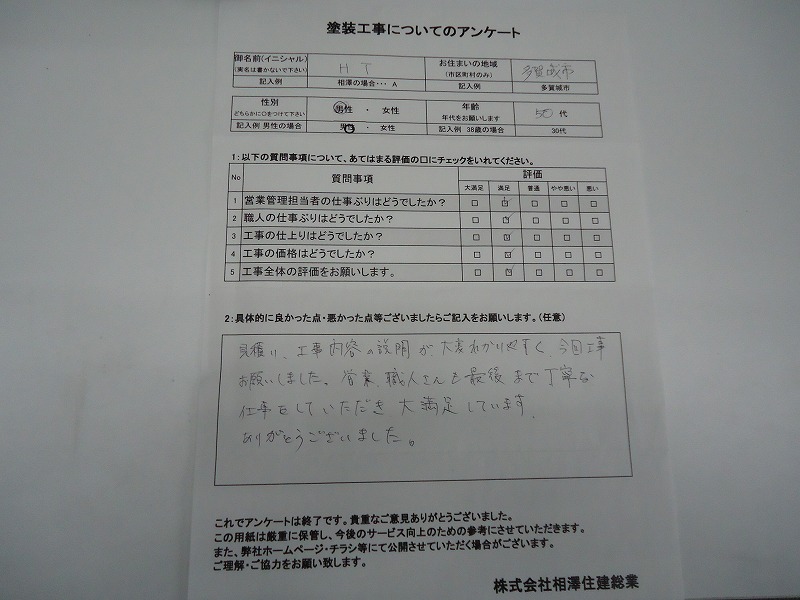 塗装工事についてのアンケート
御名前(イニシャル) H T お住まいの地域 多賀城市
(実名は書かないで下さい) (市区町村のみ)
記入例 相澤の場合・・・ A 記入例 多賀城市
性別 男性 ・ 女性 年齢 50 代
どちらかに○をつけて下さい 年代をお願いします
記入例 男性の場合 男性 ・ 女性 記入例 38歳の場合 30代
1:以下の質問事項について、あてはまる評価の口にチェックをいれてください。
No 質問事項 評価
大満足 満足 普通 やや悪い 悪い
1 営業管理担当者の仕事ぶりはどうでしたか? □ ☑ □ □ □
2 職人の仕事ぶりはどうでしたか? □ ☑ □ □ □
3 工事の仕上りはどうでしたか? □ ☑ □ □ □
4 工事の価格はどうでしたか? □ ☑ □ □ □
5 工事全体の評価をお願いします。 □ ☑ □ □ □
2:具体的に良かった点・悪かった点等ございましたらご記入をお願いします。(任意)
見積り、工事内容の説明が大変わかりやすく、今回工事
お願いしました。営業、職人さんも最後まで丁寧な
仕事をしていただき大満足しています。
ありがとうございました。
これでアンケートは終了です。貴重なご意見ありがとうございました。
この用紙は厳重に保管し、今後のサービス向上のための参考にさせていただきます。
また、弊社ホームページ・チラシ等にて公開させていただく場合がございます。
ご理解・ご協力をお願い致します。
株式会社相澤住建総業